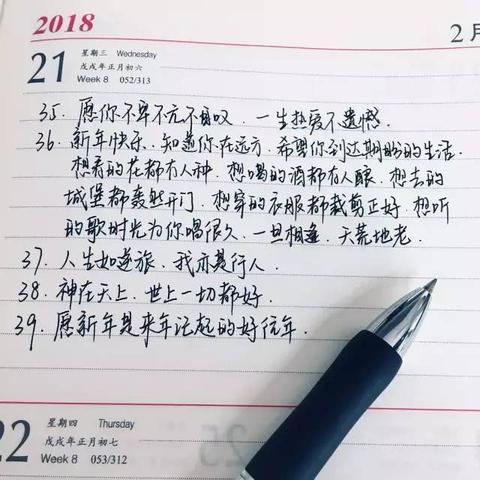 2018
2月
21 星期三 Wednesday
戊戌年正月初六
Week 8 052/313
35. 愿你不卑不亢不自叹. 一生热爱不遗憾.
36. 新年快乐. 知道你在远方. 希望你到达期盼的生活.
想看的花都有人种. 想喝的酒都有人酿. 想去的
城堡都轰然开门. 想穿的衣服都裁剪正好. 想听
的歌时光为你唱很久. 一旦相逢. 天荒地老.
37. 人生如逆旅. 我亦是行人.
38. 神在天上. 世上一切都好.
39. 愿新年是来年记起的好往年.
22 星期四 Thursday
戊戌年正月初七
Week 8 053/312